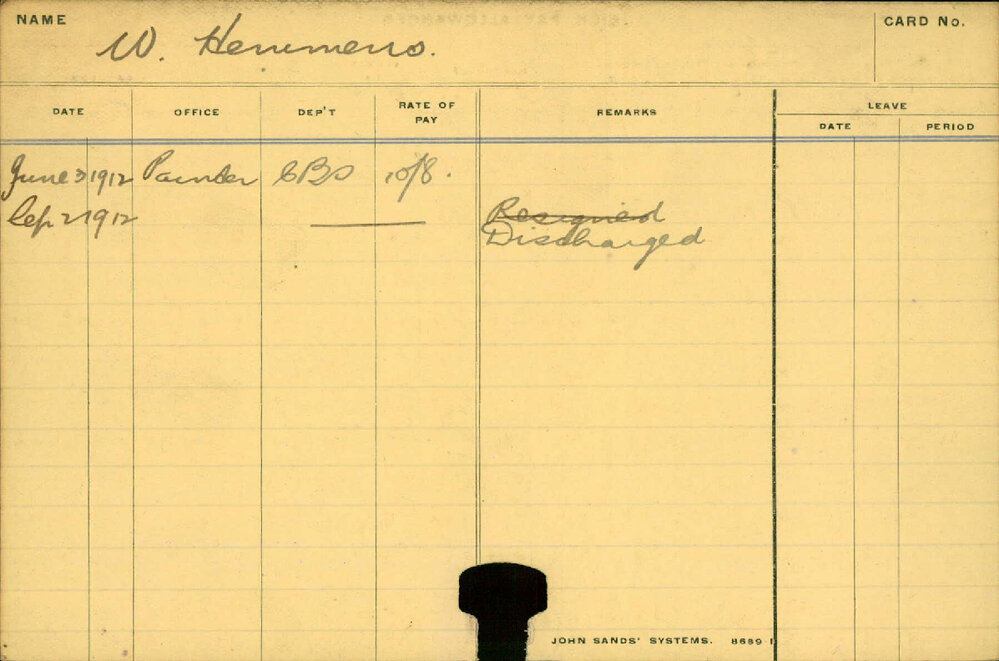 NAME W. Hemmens. CARD No.
DATE OFFICE DEP'T RATE OF PAY REMARKS LEAVE
DATE PERIOD
June 3 1912 Painter CBS 10/8.
Sep 2 1912 Resigned
Discharged
JOHN SANDS' SYSTEMS. 8689